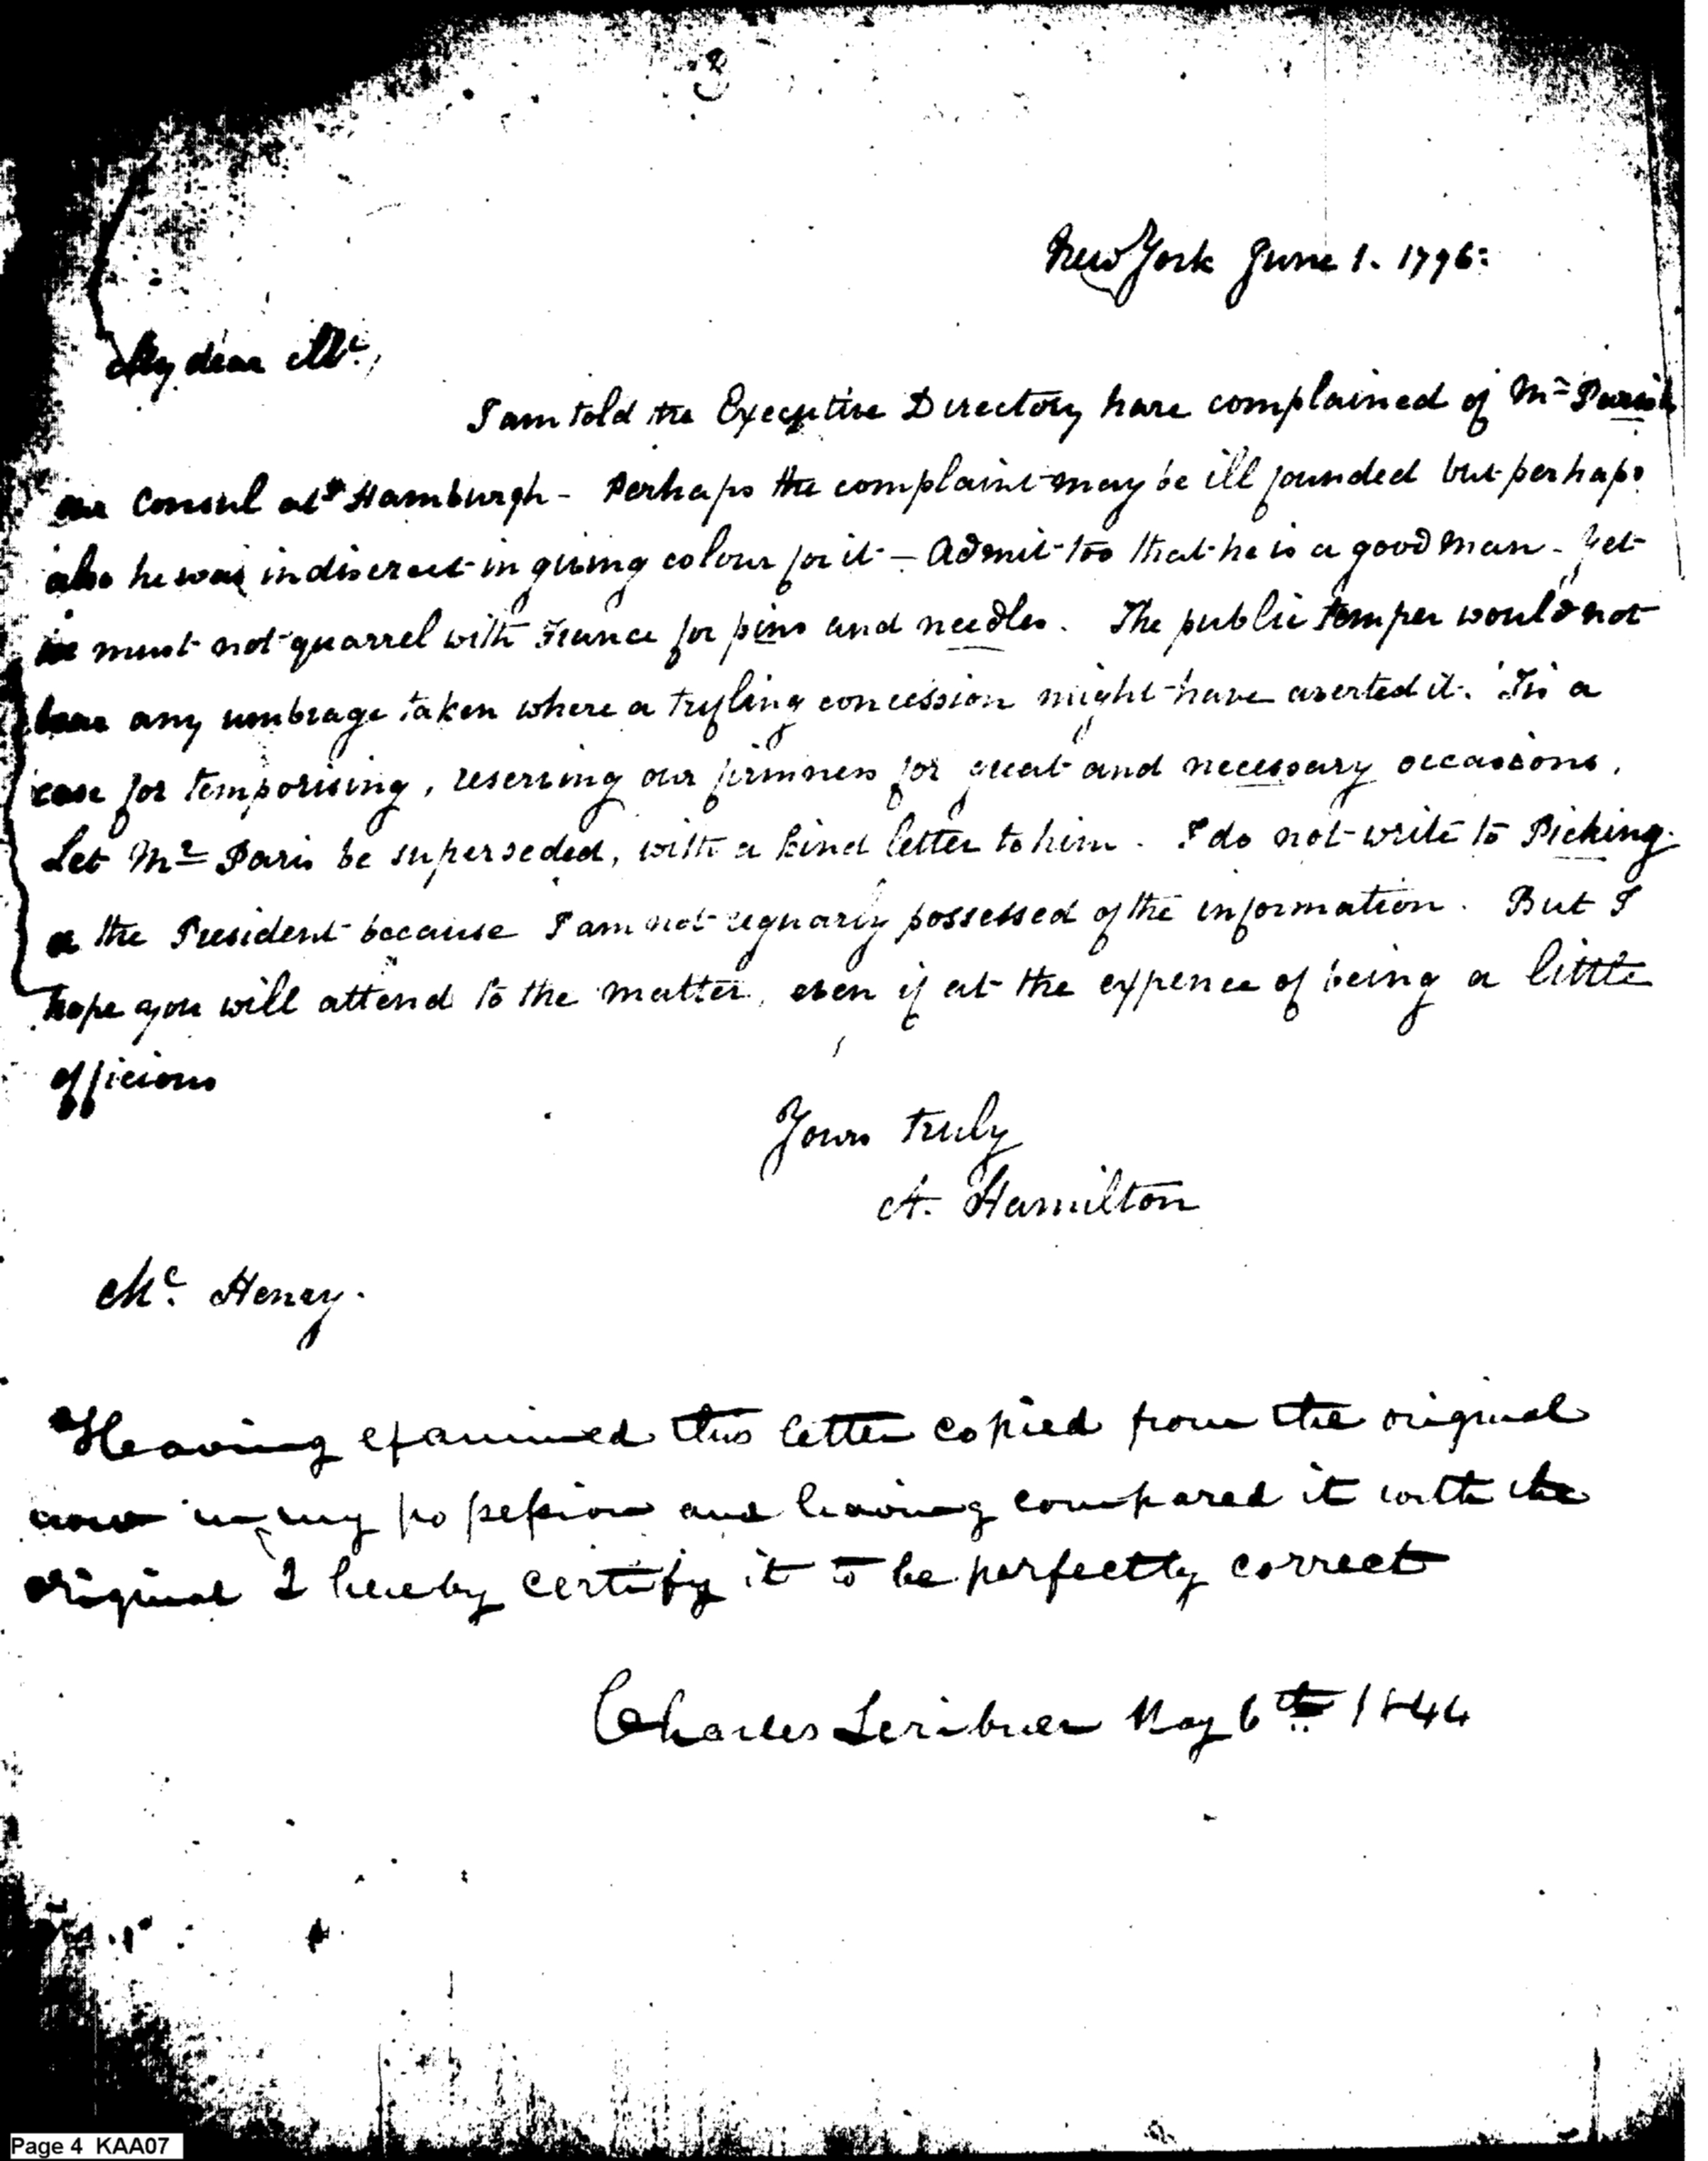 New York June 1. 1796:
My dear Mc.,
I am told the Executive Directory have complained of Mr Parish
our Consul at Hamburgh - Perhaps the complaint may be ill founded but perhaps
also he was indiscreet in giving colour for it - Admit too that he is a good man - yet
we must not quarrel with France for pins and needles. The public temper would not
bear any umbrage taken where a tryfling concession might have averted it. 'Tis a
case for temporising, reserving our firmness for great and necessary occasions.
Let Mr Paris be superseded, with a kind letter to him. I do not write to Picking.
or the President because I am not reguarly possessed of the information. But I
hope you will attend to the matter, even if at the expence of being a little
officious
Yours truly
A. Hamilton
Mc. Henry.
Having examined this letter copied from the original
now in my possession and having compared it with the
original I hereby certify it to be perfectly correct
Charles Scribner May 6th 1844
Page 4 KAA07